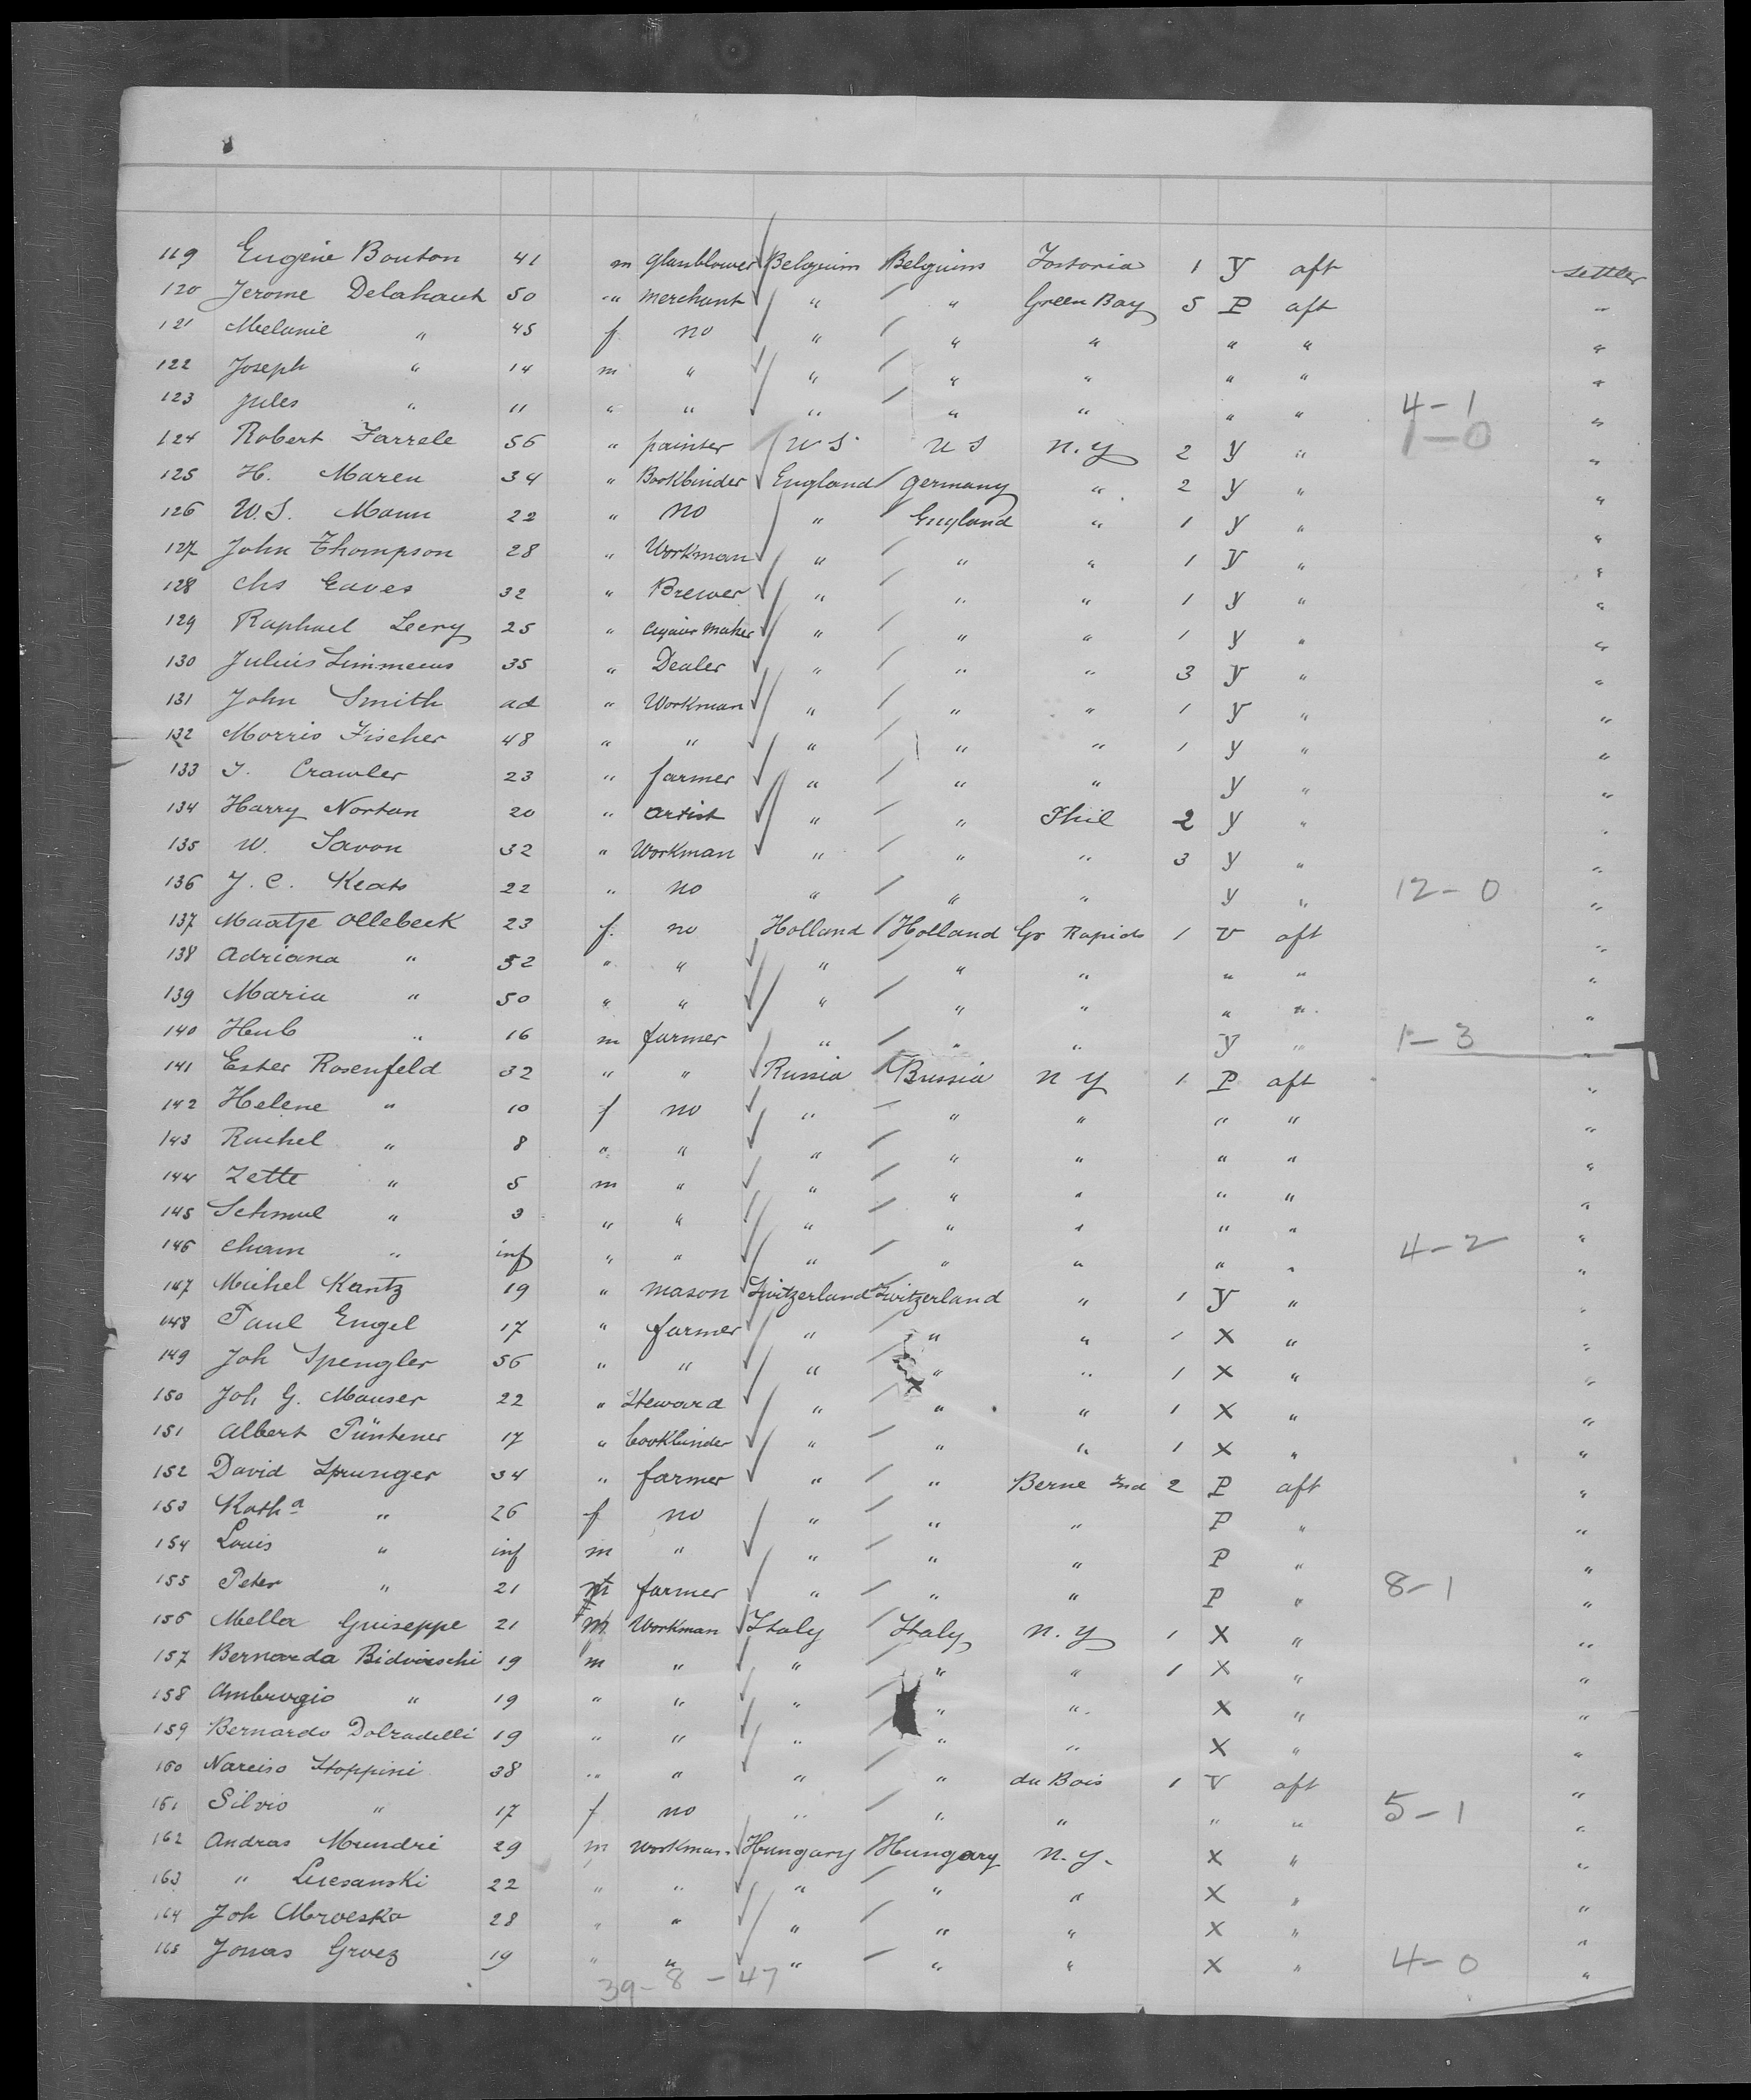 119 Eugène Bouton 41 m glassblower Belgium Belgium Fostoria 1 y aft settler
120 Jerome Delahaut 50 " merchant " " Green Bay 5 P aft "
121 Melanie " 45 f no " " " " " "
122 Joseph " 14 m " " " " " " "
123 Jules " 11 " " " " " " " 4-1 "
124 Robert Farrele 56 " painter U S. U S N.Y 2 y " 1-0 "
125 H. Maren 34 " Bookbinder England Germany " 2 y " "
126 W.S. Mann 22 " no " England " 1 y " "
127 John Thompson 28 " Workman " " " 1 y " "
128 Chs Eaves 32 " Brewer " " " 1 y " "
129 Raphael Leery 25 " Cigair maker " " " 1 y " "
130 Julius Simmeus 35 " Dealer " " " 3 y " "
131 John Smith ad " Workman " " " 1 y " "
132 Morris Fischer 48 " " " " " 1 y " "
133 J. Crawler 23 " farmer " " " y " "
134 Harry Nortan 20 " artist " " Phil 2 y " "
135 W. Savon 32 " Workman " " " 3 y " "
136 J. C. Keats 22 " no " " " y " 12-0 "
137 Maatje Ollebeek 23 f. no Holland Holland Gr Rapids 1 V aft "
138 Adriana " 52 " " " " " " " "
139 Maria " 50 " " " " " " " "
140 Hub " 16 m farmer " " " y " 1-3 "
141 Ester Rosenfeld 32 " " Russia Russia N Y 1 P aft "
142 Helene " 10 f no " " " " " "
143 Rachel " 8 " " " " " " " "
144 Zette " 5 m " " " " " " "
145 Schmul " 3 " " " " " " " "
146 Cham " inf " " " " " " " 4-2 "
147 Michel Kantz 19 " mason Switzerland Switzerland " 1 y " "
148 Paul Engel 17 " farmer " " " 1 X " "
149 Joh Spengler 56 " " " " " 1 X " "
150 Joh G. Mauser 22 " Steward " " " 1 X " "
151 Albert Püntener 17 " bookbinder " " " 1 X " "
152 David Sprunger 34 " farmer " " Berne Ind 2 P aft "
153 Katha " 26 f no " " " P " "
154 Louis " inf m " " " " P " "
155 Peter " 21 m farmer " " " P " 8-1 "
156 Mella Guiseppe 21 m Workman Italy Italy N.Y 1 X " "
157 Bernarda Bidvieschi 19 m " " " " 1 X " "
158 Ambrogio " 19 " " " " " X " "
159 Bernardo Dolradelli 19 " " " " " X " "
160 Narciso Stoppini 38 " " " " du Bois 1 V aft "
161 Silvio " 17 f no " " " " " 5-1 "
162 Andras Mundri 29 m workman Hungary Hungary N.Y. X " "
163 " Lucsanski 22 " " " " " X " "
164 Joh Mrvesko 28 " " " " " X " "
165 Jonas Groez 19 " " " " " X " 4-0 "
39-8-47